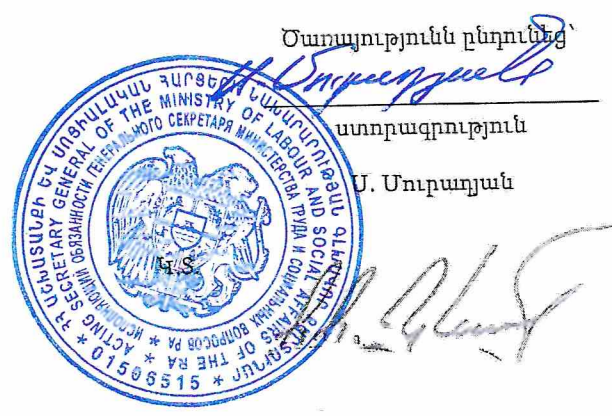 Ծառայությունն ընդունեց՝
ստորագրություն
Ս. Մուրադյան
Կ.Տ.
ՀՀ ԱՇԽԱՏԱՆՔԻ ԵՎ ՍՈՑԻԱԼԱԿԱՆ ՀԱՐՑԵՐԻ ՆԱԽԱՐԱՐՈՒԹՅԱՆ ԳԼԽԱՎՈՐ ՔԱՐՏՈՒՂԱՐ
* ACTING SECRETARY GENERAL OF THE MINISTRY OF LABOUR AND SOCIAL AFFAIRS OF THE RA *
* ИСПОЛНЯЮЩИЙ ОБЯЗАННОСТИ ГЕНЕРАЛЬНОГО СЕКРЕТАРЯ МИНИСТЕРСТВА ТРУДА И СОЦИАЛЬНЫХ ВОПРОСОВ РА
* 01506515 *